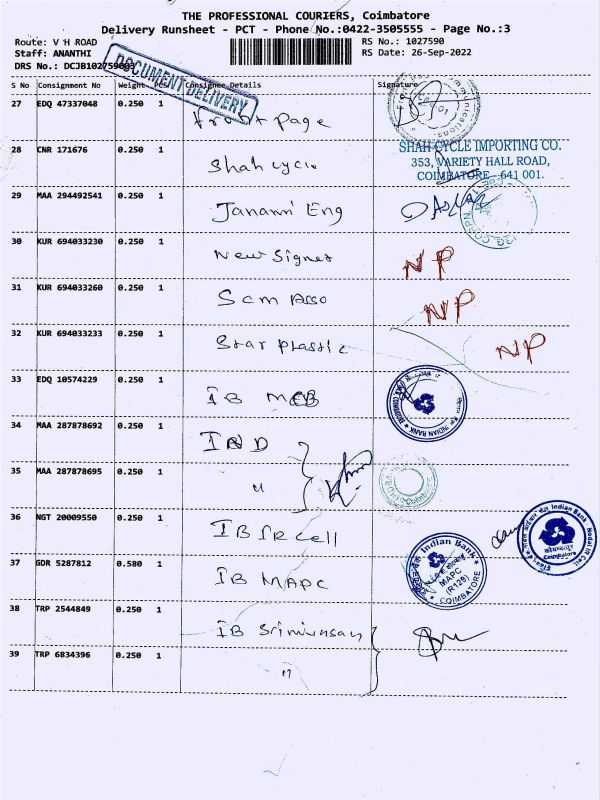 THE PROFESSIONAL COURIERS, Coimbatore
Delivery Runsheet - PCT - Phone No.:0422-3505555 - Page No.:3
Route: V H ROAD
RS No.: 1027590
Staff: ANANTHI
RS Date: 26-Sep-2022
DRS No.: DCJB102759003
DOCUMENT DELIVERY
S No Consignment No Weight PCS Consignee Details Signature
27 EDQ 47337048 0.250 1
front page
28 CNR 171676 0.250 1
Shah cycle
SHAH CYCLE IMPORTING CO.
353, VARIETY HALL ROAD,
COIMBATORE - 641 001.
29 MAA 294492541 0.250 1
Janani Eng
30 KUR 694033230 0.250 1
New Signet
NP
31 KUR 694033260 0.250 1
Scm Asso
NP
32 KUR 694033233 0.250 1
Star plastic
NP
33 EDQ 10574229 0.250 1
IB MCB
INDIAN BANK
34 MAA 287878692 0.250 1
IND
35 MAA 287878695 0.250 1
"
36 NGT 20009550 0.250 1
IB IR cell
Indian Bank
कोयम्बत्तूर
Coimbatore
37 GDR 5287812 0.580 1
IB MAPC
Indian Bank
MAPC
(R129)
COIMBATORE
38 TRP 2544849 0.250 1
IB Srinivasan
39 TRP 6834396 0.250 1
"